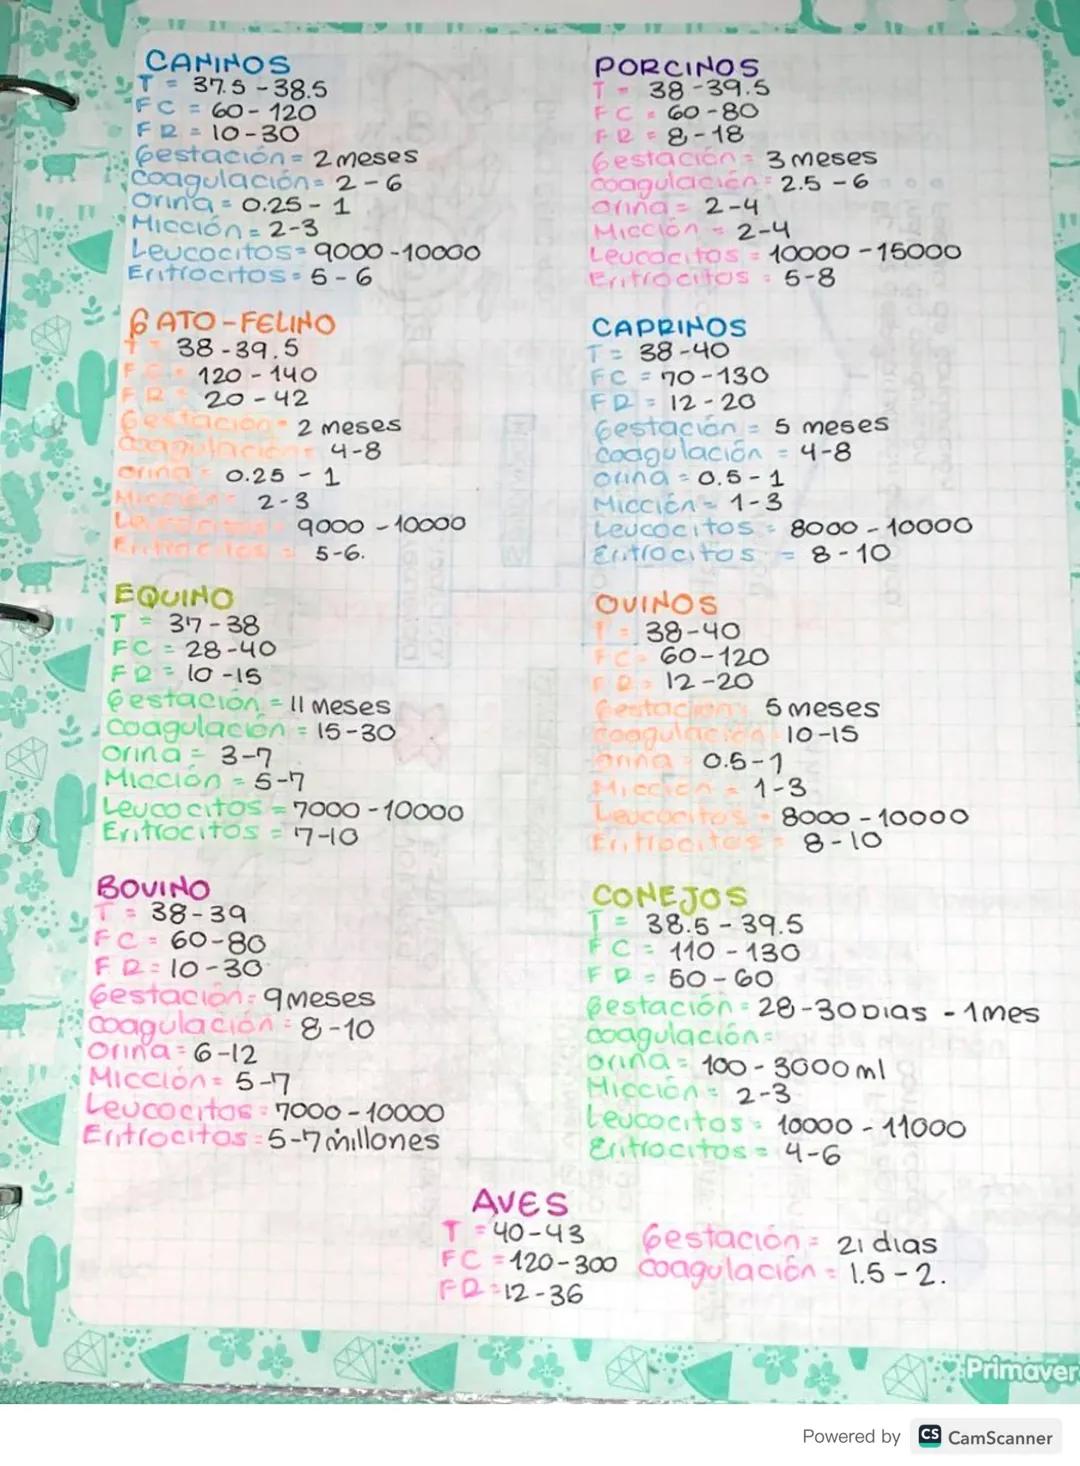 CANINOS
T = 37.5 - 38.5
FC = 60 - 120
FR = 10 - 30
Gestación = 2 meses
Coagulación = 2 - 6
Orina = 0.25 - 1
Micción = 2 - 3
Leucocitos = 9000 - 10000
Eritrocitos = 5 - 6
GATO - FELINO
T = 38 - 39.5
FC = 120 - 140
FR = 20 - 42
Gestación = 2 meses
Coagulación = 4 - 8
Orina = 0.25 - 1
Micción = 2 - 3
Leucocitos = 9000 - 10000
Eritrocitos = 5 - 6.
EQUINO
T = 37 - 38
FC = 28 - 40
FR = 10 - 15
Gestación = 11 meses
Coagulación = 15 - 30
Orina = 3 - 7
Micción = 5 - 7
Leucocitos = 7000 - 10000
Eritrocitos = 7 - 10
BOVINO
T = 38 - 39
FC = 60 - 80
FR = 10 - 30
Gestación = 9 meses
Coagulación = 8 - 10
Orina = 6 - 12
Micción = 5 - 7
Leucocitos = 7000 - 10000
Eritrocitos = 5 - 7 millones
PORCINOS
T = 38 - 39.5
FC = 60 - 80
FR = 8 - 18
Gestación = 3 meses
Coagulación = 2.5 - 6
Orina = 2 - 4
Micción = 2 - 4
Leucocitos = 10000 - 15000
Eritrocitos = 5 - 8
CAPRINOS
T = 38 - 40
FC = 70 - 130
FR = 12 - 20
Gestación = 5 meses
Coagulación = 4 - 8
Orina = 0.5 - 1
Micción = 1 - 3
Leucocitos = 8000 - 10000
Eritrocitos = 8 - 10
OVINOS
T = 38 - 40
FC = 60 - 120
FR = 12 - 20
Gestación = 5 meses
Coagulación = 10 - 15
Orina = 0.5 - 1
Micción = 1 - 3
Leucocitos = 8000 - 10000
Eritrocitos = 8 - 10
CONEJOS
T = 38.5 - 39.5
FC = 110 - 130
FR = 50 - 60
Gestación = 28 - 30 Dias - 1 mes
Coagulación =
Orina = 100 - 3000 ml
Micción = 2 - 3
Leucocitos = 10000 - 11000
Eritrocitos = 4 - 6
AVES
T = 40 - 43
FC = 120 - 300
FR = 12 - 36
Gestación = 21 dias
Coagulación = 1.5 - 2.
Primaver
Powered by CS CamScanner